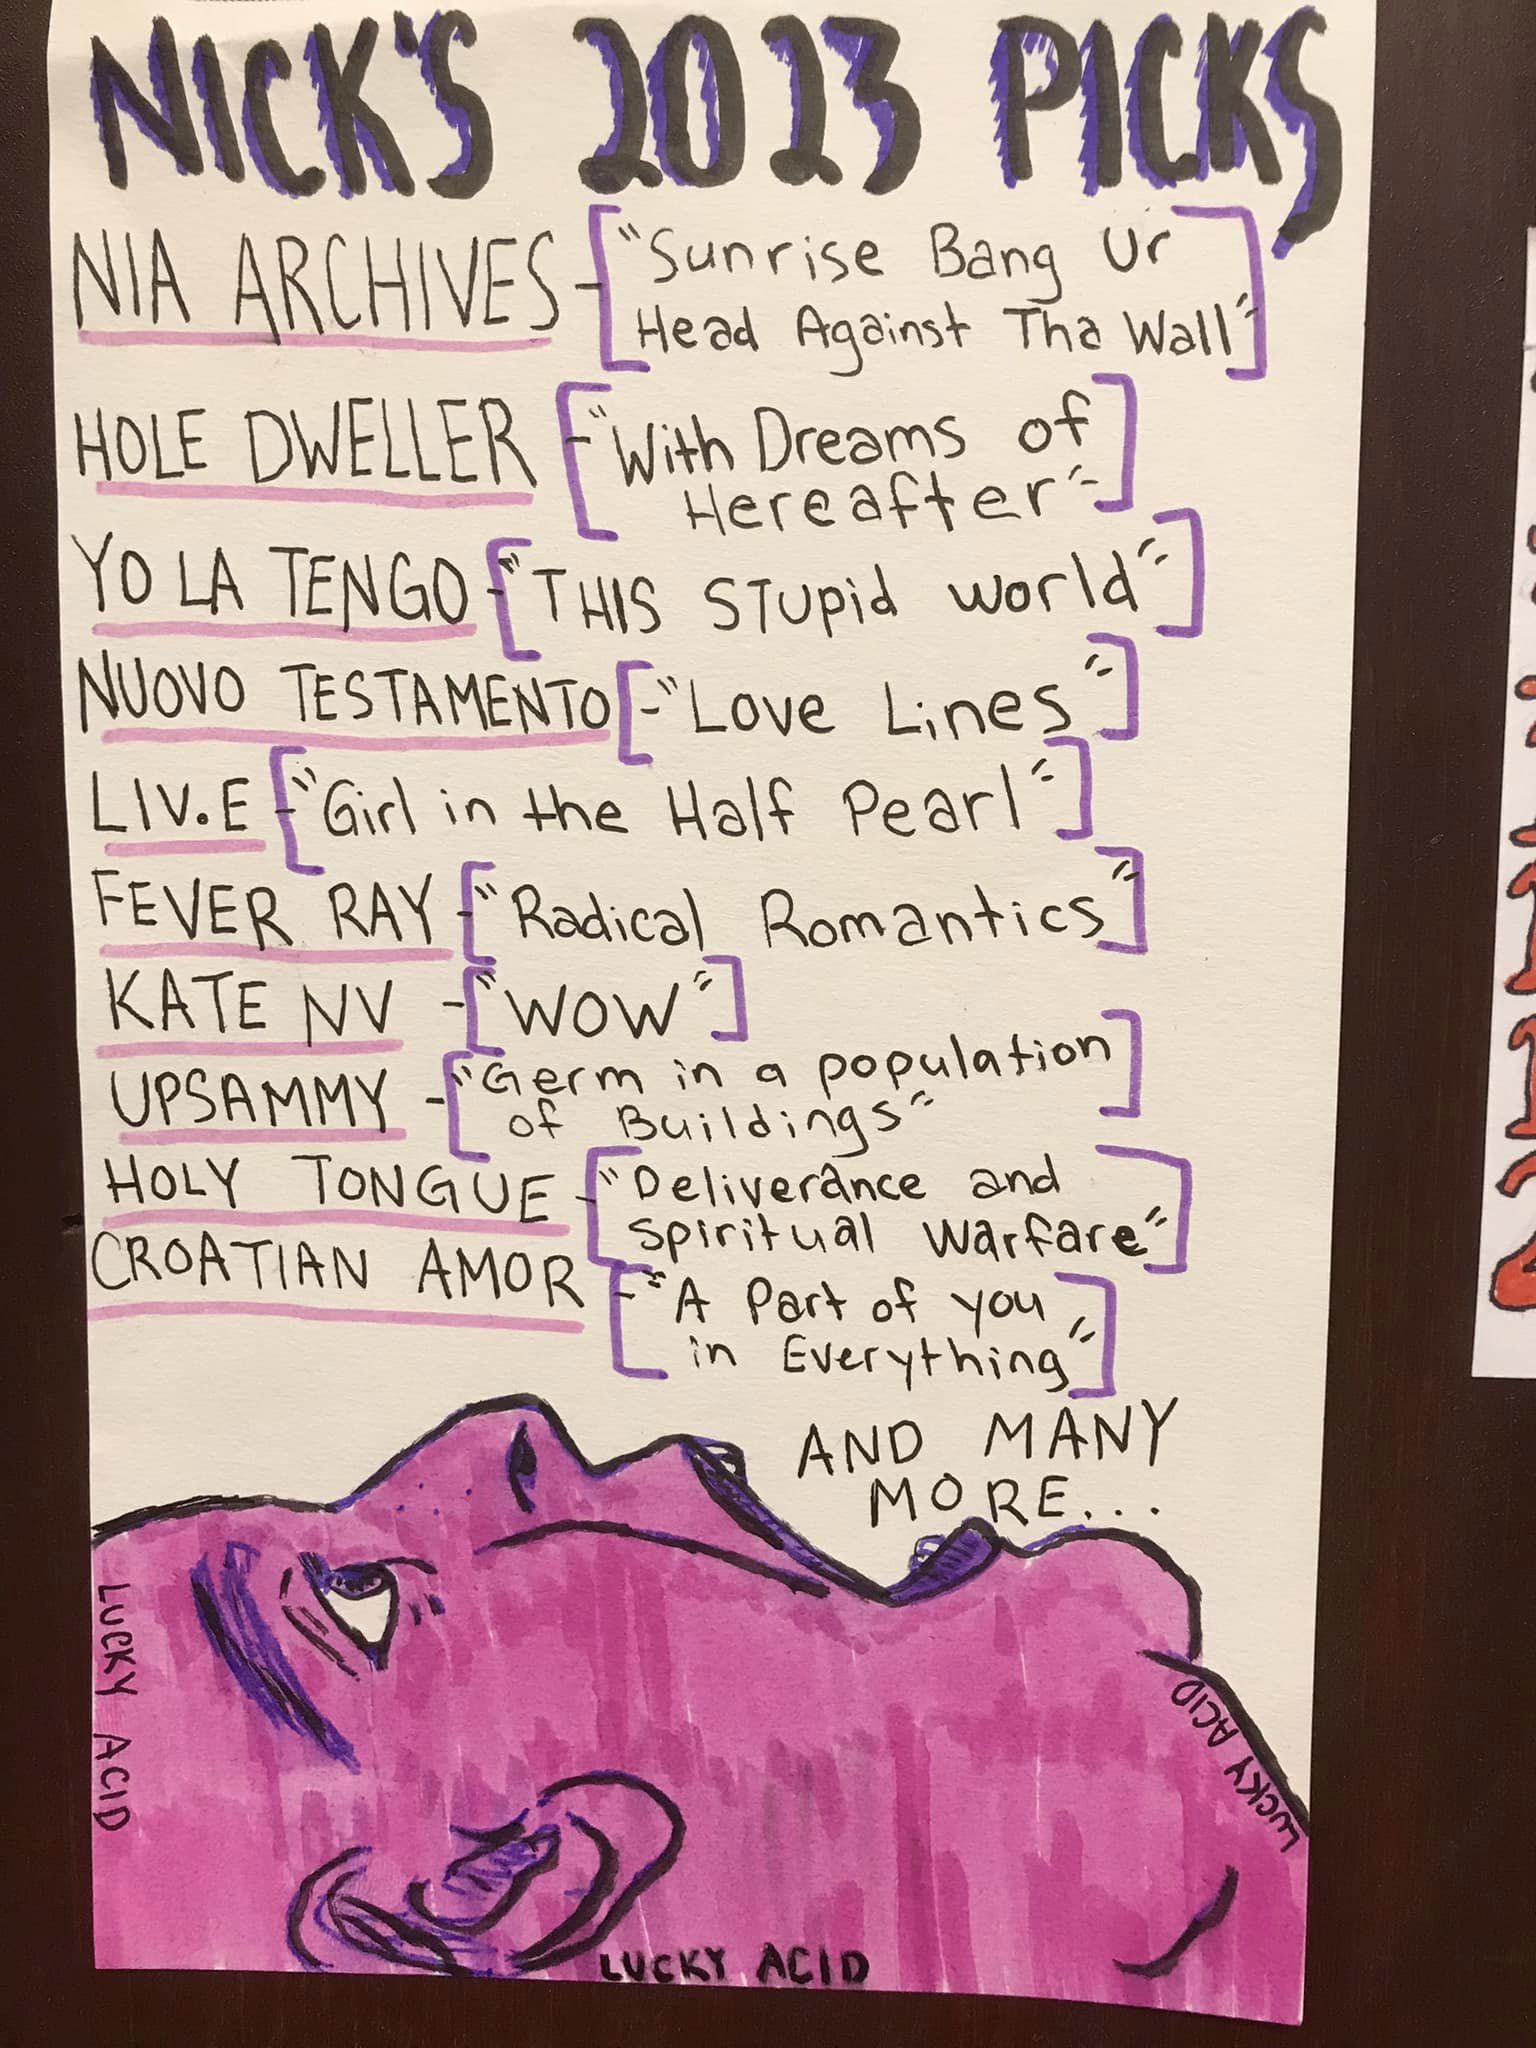 NICK'S 2023 PICKS
NIA ARCHIVES - ["Sunrise Bang Ur
Head Against Tha Wall"]
HOLE DWELLER - ["With Dreams of
Hereafter"]
YO LA TENGO - ["THIS STupid world"]
NUOVO TESTAMENTO [- "Love Lines"]
LIV.E - ["Girl in the Half Pearl"]
FEVER RAY - ["Radical Romantics"]
KATE NV - ["WOW"]
UPSAMMY - ["Germ in a population
of Buildings"]
HOLY TONGUE - ["Deliverance and
Spiritual Warfare"]
CROATIAN AMOR [- "A Part of you
in Everything"]
AND MANY
MORE...
LUCKY ACID
LUCKY ACID
LUCKY ACID